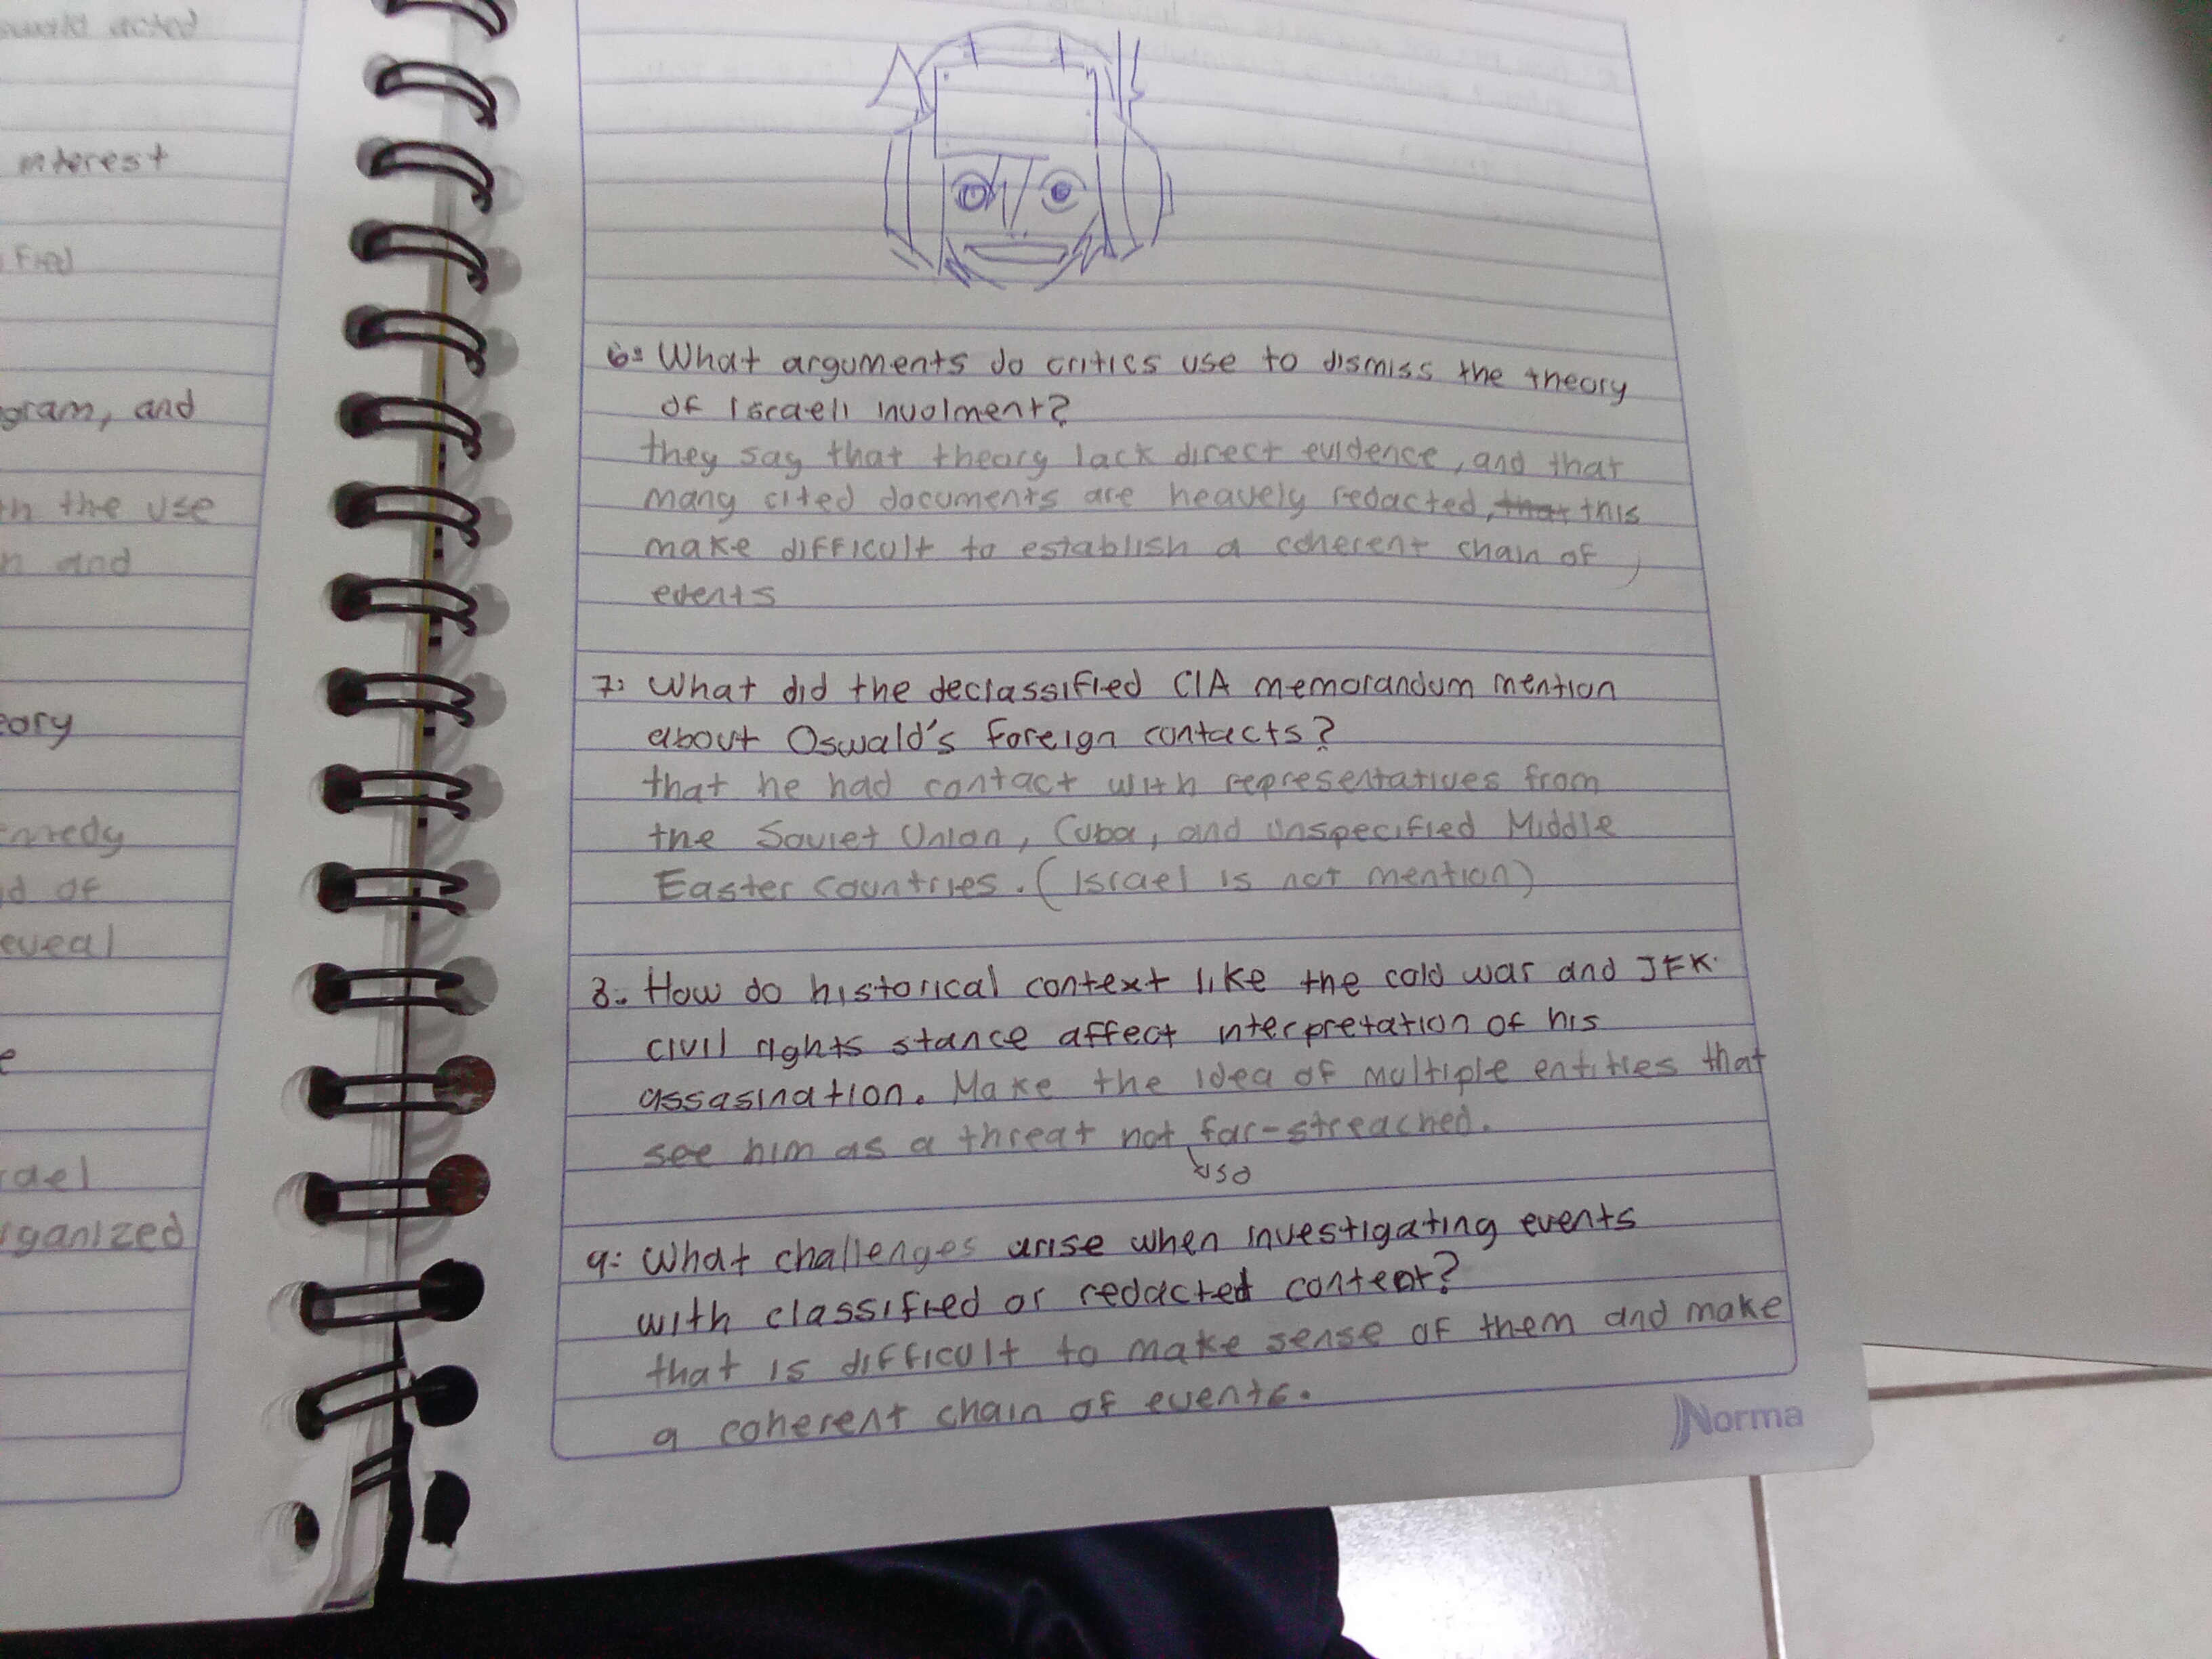 swald acted
interest
fied
gram, and
th the use
n and
eory
ennedy
d of
eveal
e
rael
rganized
6: What arguments do critics use to dismiss the theory
of Israeli involment?
they say that theory lack direct evidence, and that
many cited documents are heavely redacted, that this
make difficult to establish a coherent chain of
events
7: What did the declassified CIA memorandum mention
about Oswald's foreign contacts?
that he had contact with representatives from
the Soviet Union, Cuba, and unspecified Middle
Easter countries. (Israel is not mention)
8. How do historical context like the cold war and JFK
civil rights stance affect interpretation of his
assasination. Make the idea of multiple entities that
see him as a threat not far-streached.
so
9: What challenges arise when investigating events
with classified or redacted content?
that is difficult to make sense of them and make
a coherent chain of events.
Norma